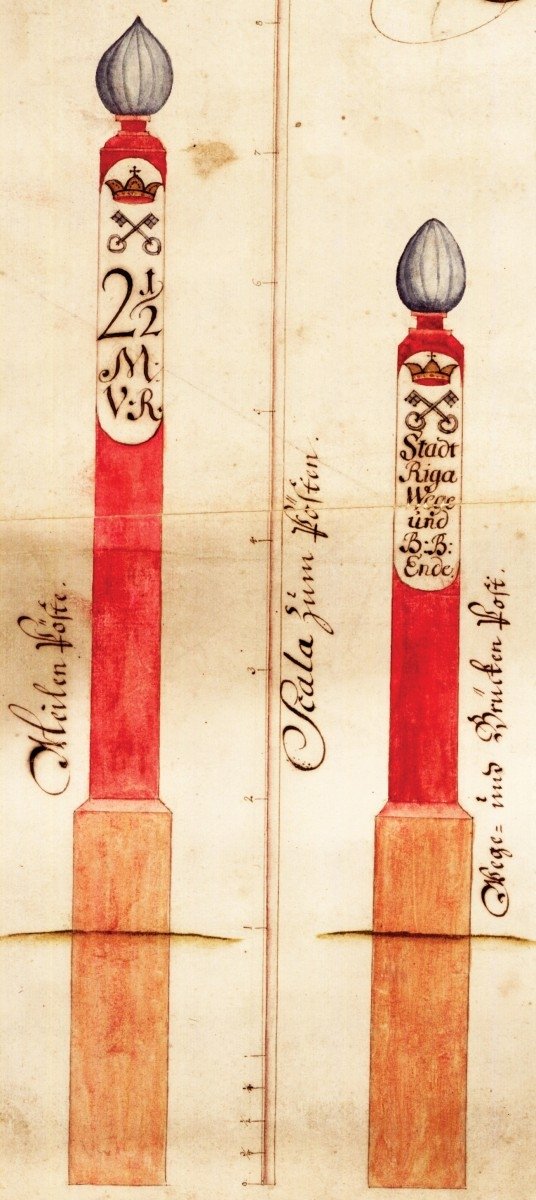 2 1/2
M:
V:R:
Meilen Pöste.
8
7
6
5
4
3
2
1
Scala zum Pösten.
Stadt
Riga
Wege
und
B:B:
Ende
Wege= und Brücken Post.